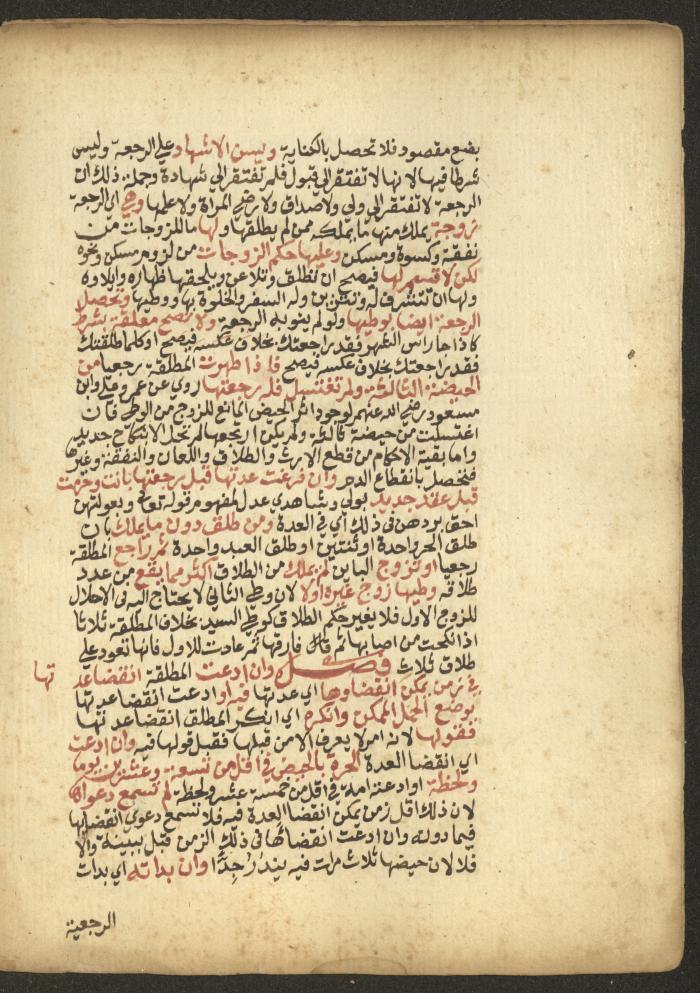 بضع مقصود فلا تحصل بالكناية ويسن الاشهاد على الرجعة وليس
شرطا فيها لانها لا تفتقر الى قبول فلم تفتقر الى شهادة وجملة ذلك ان
الرجعة لا تفتقر الى ولي ولا صداق ولا رضى المراة ولا علمها وهي اي الرجعة
زوجة يملك منها ما يملكه ممن لم يطلقها ولها ما للزوجات من
نفقة وكسوة ومسكن وعليها حكم الزوجات من لزوم مسكن ونحوه
لكن لا قسم لها فيصح ان تطلق وتلاعن ويلحقها ظهاره وايلاوه
ولها ان تتشرف له وتتزين وله السفر والخلوة بها ووطيها وتحصل
الرجعة ايضا بوطيها ولو لم ينو به الرجعة ولا تصح معلقة بشرط
كاذا جا راس الشهر فقد راجعتك بخلاف عكسه فيصح او كلما طلقتك
فقد راجعتك بخلاف عكسه فيصح فاذا طهرت المطلقة رجعيا من
الحيضة الثالثة ولم تغتسل فله رجعتها روي عن عمر وعلي وابن
مسعود رضي الله عنهم لوجود اثر الحيض المانع للزوج من الوطي فان
اغتسلت من حيضة ثالثة ولم يكن ارتجعها لم تحل الا بنكاح جديد
واما بقية الاحكام من قطع الارث والطلاق واللعان والنفقة وغيرها
فتحصل بانقطاع الدم وان فرغت عدتها قبل رجعتها بانت وحرمت
قبل عقد جديد بولي وشاهدي عدل لمفهوم قوله تعالى وبعولتهن
احق بردهن في ذلك اي في العدة ومن طلق دون ما يملك بان
طلق الحر واحدة او ثنتين او طلق العبد واحدة ثم راجع المطلقة
رجعيا او تزوج الباين لم يملك من الطلاق اكثر مما بقي من عدد
طلاقه وطيها زوج غيره او لا لان وطي الثاني لا يحتاج اليه في الاحلال
للزوج الاول فلا يغير حكم الطلاق كوطي السيد بخلاف المطلقة ثلاثا
اذا نكحت من اصابها ثم فارقها ثم عادت للاول فانها تعود على
طلاق ثلاث فصل وان ادعت المطلقة انقضا عدتها
في زمن يمكن انقضاوها اي عدتها فيه او ادعت انقضا عدتها
بوضع الحمل الممكن وانكره اي انكر المطلق انقضا عدتها
فقولها لانه امر لا يعرف الا من قبلها فقبل قولها فيه وان ادعت
اي انقضا العدة الحرة بالحيض في اقل من تسعة وعشرين يوما
ولحظة او ادعته امة في اقل من خمسة عشر ولحظة لم تسمع دعواها
لان ذلك اقل زمن يمكن انقضا العدة فيه فلا تسمع دعوى انقضايها
فيما دونه وان ادعت انقضاها في ذلك الزمن قبل ببينة والا
فلا لان حيضها ثلاث مرات فيه يندر جدا وان بداته اي بدات
الرجعية